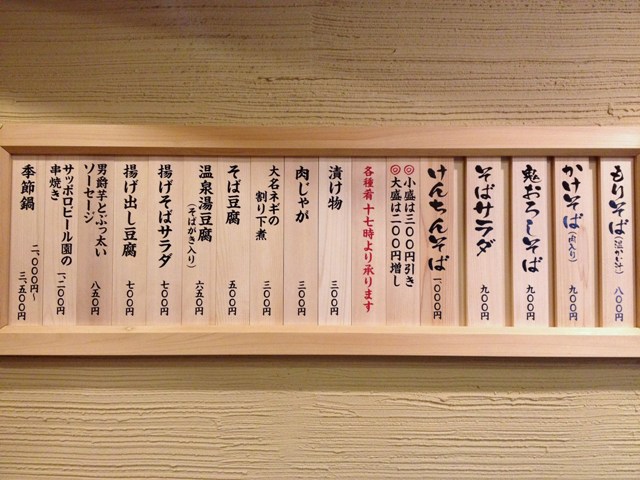 もりそば(温かい汁) 八〇〇円
かけそば(肉入り) 九〇〇円
鬼おろしそば 九〇〇円
そばサラダ 九〇〇円
けんちんそば 一、〇〇〇円
◎小盛は三〇〇円引き
◎大盛は二〇〇円増し
各種肴 十七時より承ります
漬け物 三〇〇円
肉じゃが 三〇〇円
大名ネギの
割り下煮 三〇〇円
そば豆腐 五〇〇円
温泉湯豆腐
(そばがき入り) 六五〇円
揚げそばサラダ 七〇〇円
揚げ出し豆腐 七〇〇円
男爵芋とぶっ太い
ソーセージ 八五〇円
サッポロビール園の
串焼き 一、二〇〇円
季節鍋 二、〇〇〇円～
三、五〇〇円